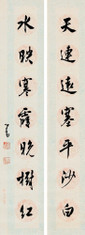 天連遠塞平沙白
水映寒霞晚樹紅